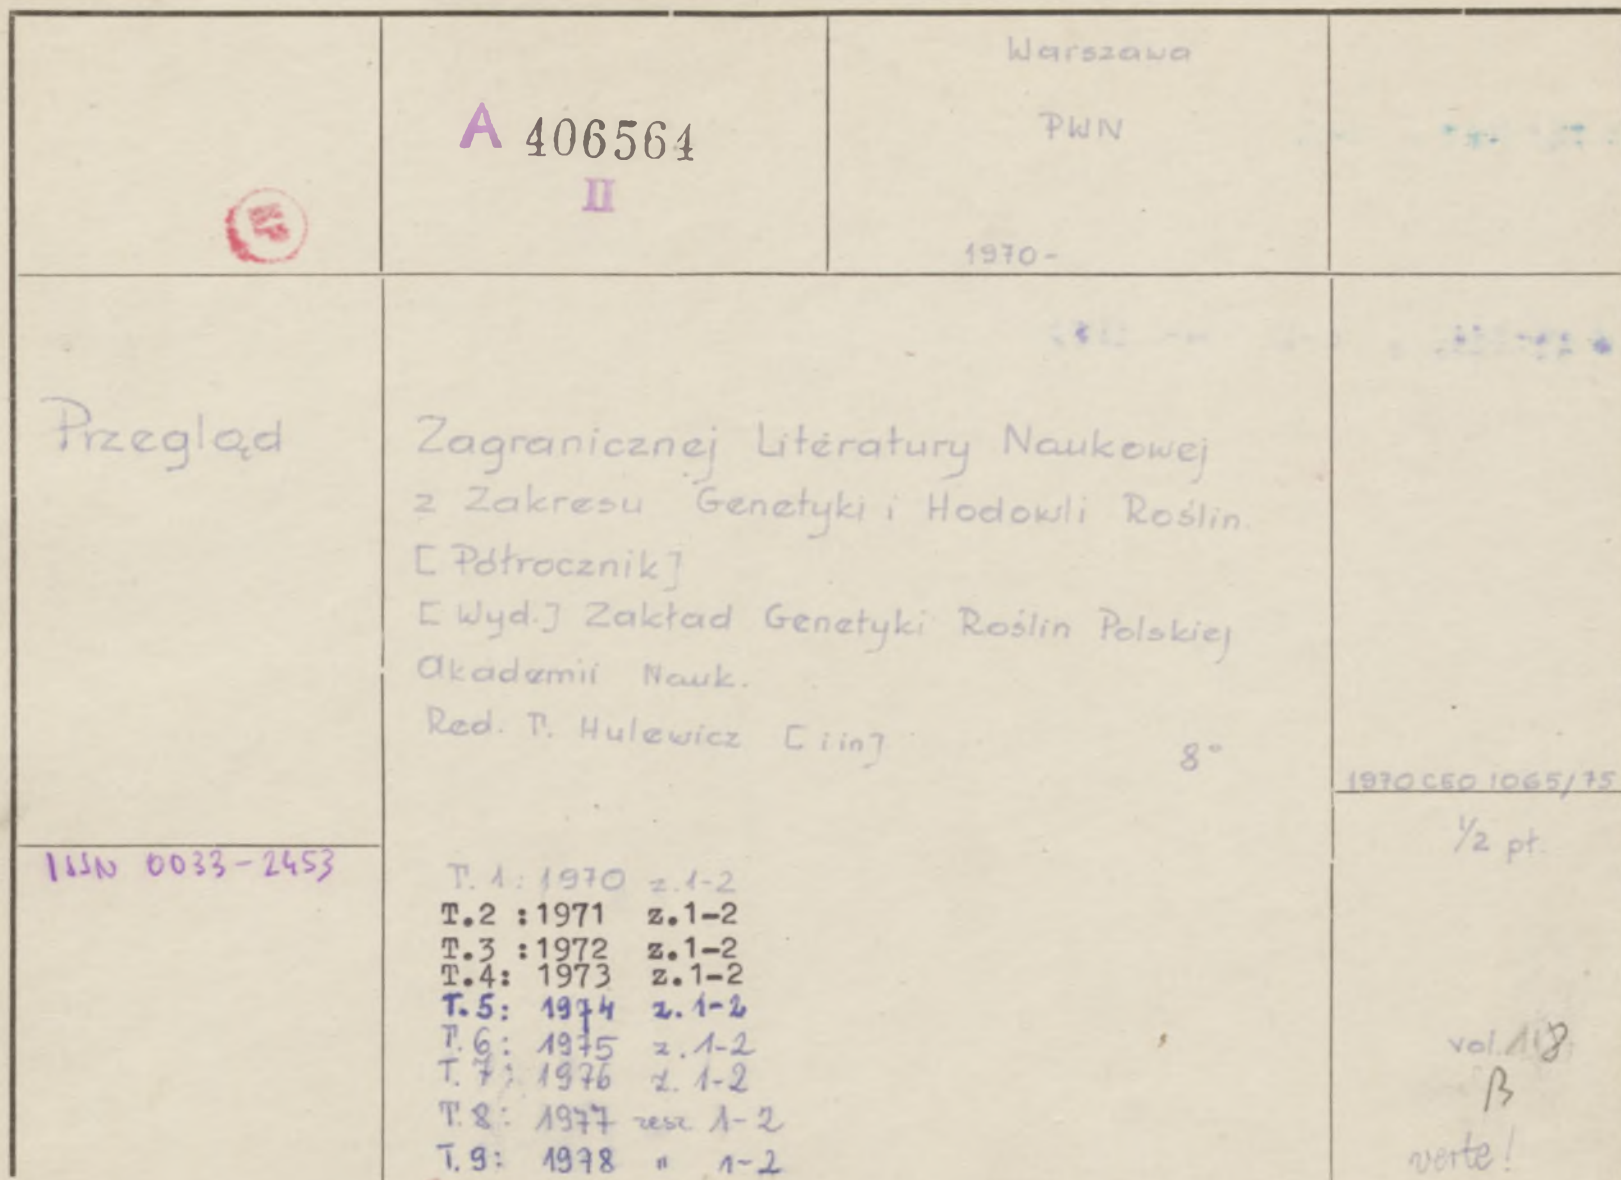 Warszawa
PWN
A 406564
II
1970-
Przegląd
Zagranicznej Literatury Naukowej
z Zakresu Genetyki i Hodowli Roślin.
[Półrocznik]
[Wyd.] Zakład Genetyki Roślin Polskiej
Akademii Nauk.
Red. T. Hulewicz [i in]
8°
1970 CEO 1065/75
1/2 pł.
ISSN 0033-2453
T. 1: 1970 z. 1-2
T.2 :1971 z.1-2
T.3 :1972 z.1-2
T.4: 1973 z.1-2
T.5: 1974 z. 1-2
T. 6: 1975 z. 1-2
T. 7: 1976 z. 1-2
T. 8: 1977 zesz 1-2
T. 9: 1978 " 1-2
vol.
verte!